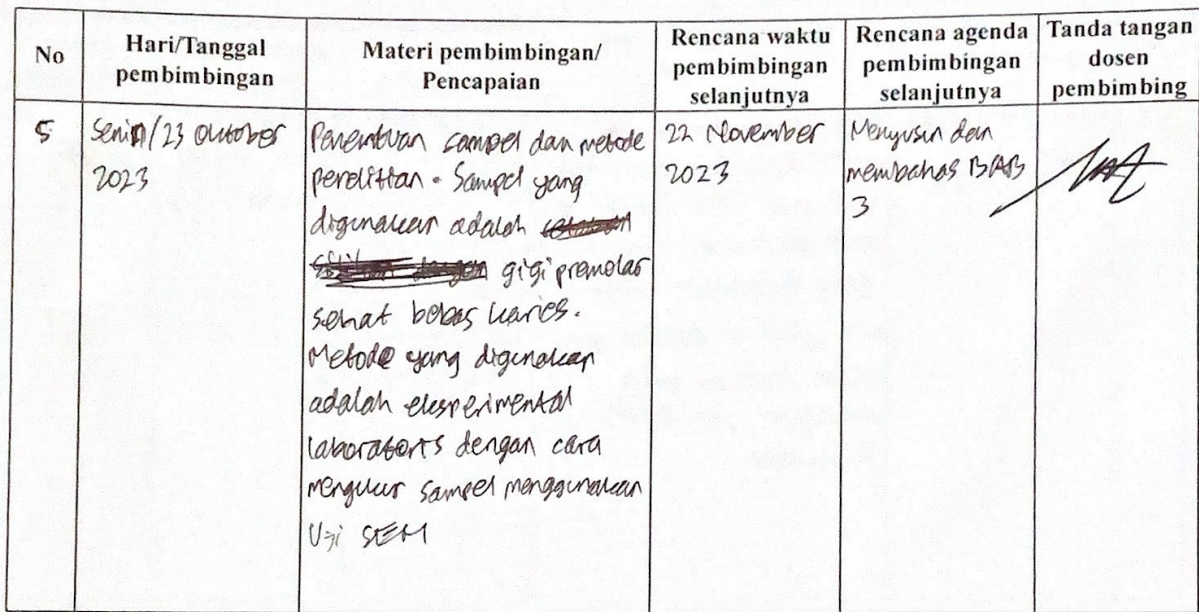 No
Hari/Tanggal
pembimbingan
Materi pembimbingan/
Pencapaian
Rencana waktu
pembimbingan
selanjutnya
Rencana agenda
pembimbingan
selanjutnya
Tanda tangan
dosen
pembimbing
5
Senin/23 Oktober
2023
Penentuan sampel dan metode
penelitian. Sampel yang
digunakan adalah
gigi premolar
sehat bebas karies.
Metode yang digunakan
adalah eksperimental
laboratoris dengan cara
mengukur sampel menggunakan
Uji SEM
22 November
2023
Menyusun dan
membahas BAB
3